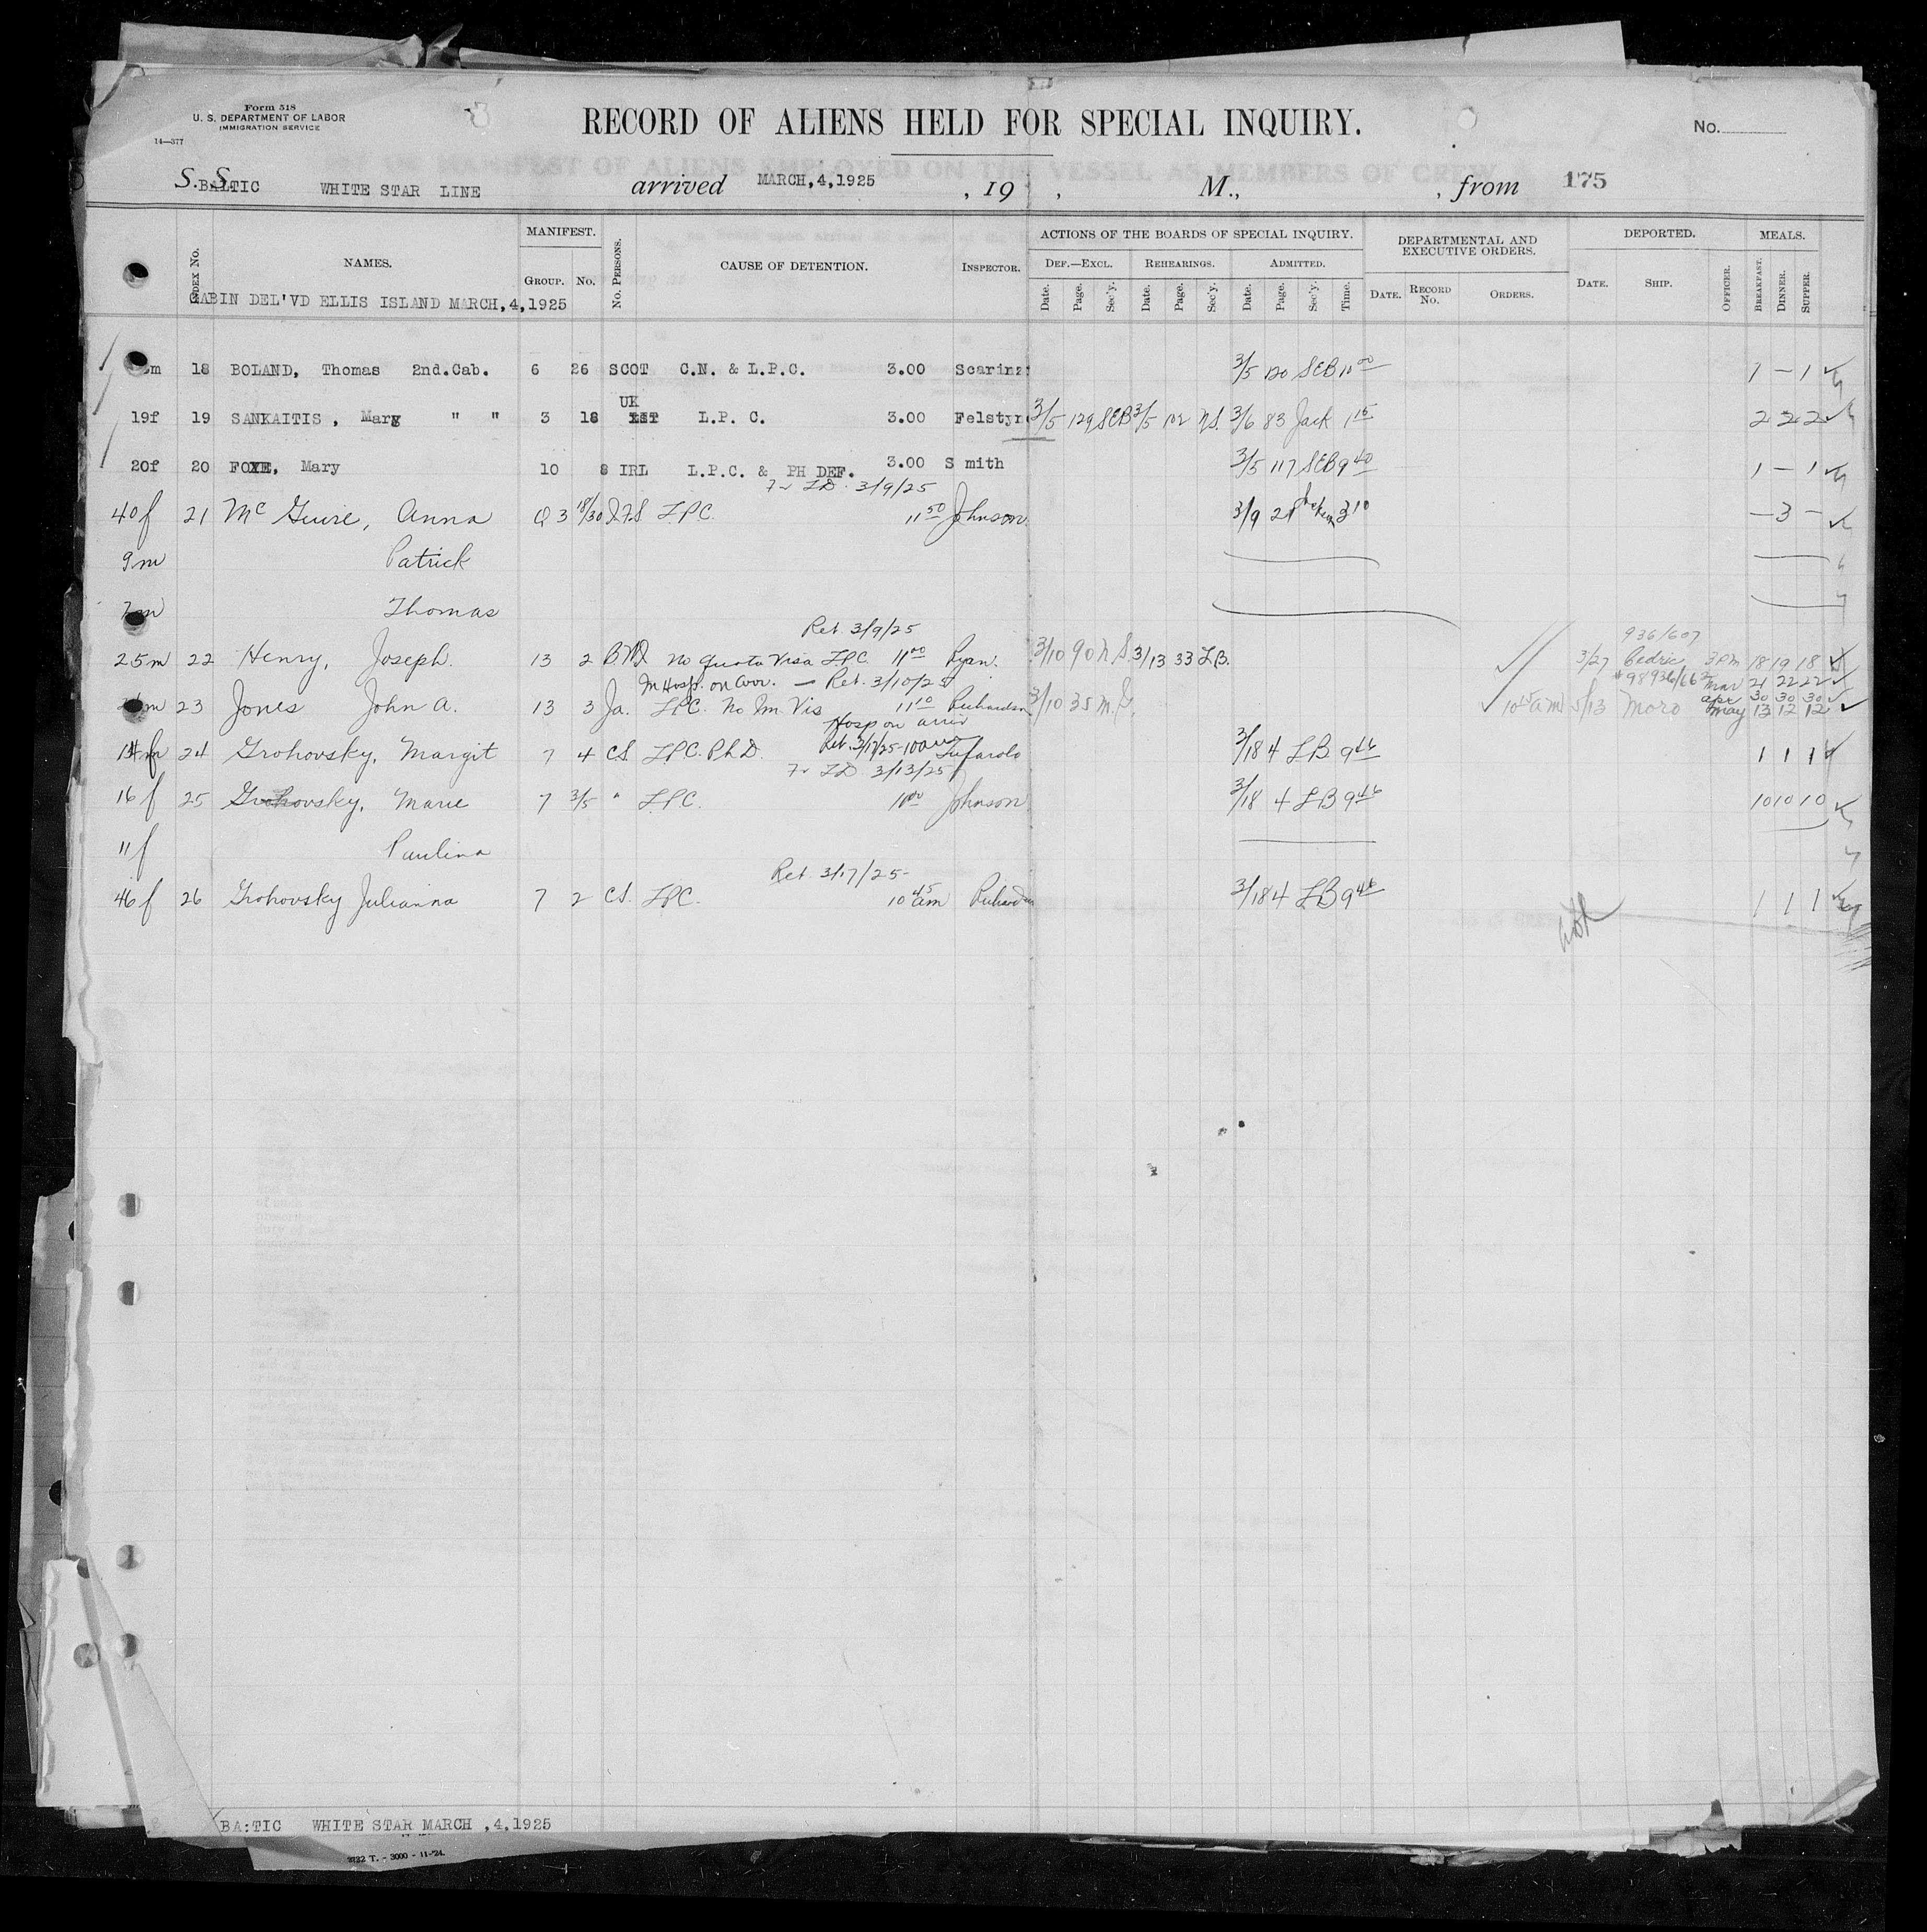 Form 518
U. S. DEPARTMENT OF LABOR
IMMIGRATION SERVICE
14—377
RECORD OF ALIENS HELD FOR SPECIAL INQUIRY.
No.
S. S. BALTIC WHITE STAR LINE arrived MARCH,4,1925 , 19 , M., , from 175
INDEX NO. NAMES. MANIFEST. GROUP. NO. NO. PERSONS. CAUSE OF DETENTION. INSPECTOR. ACTIONS OF THE BOARDS OF SPECIAL INQUIRY. DEPARTMENTAL AND EXECUTIVE ORDERS. DEPORTED. MEALS.
DEF.—EXCL. REHEARINGS. ADMITTED.
Date. Page. Sec'y. Date. Page. Sec'y. Date. Page. Sec'y. Time. DATE. RECORD NO. ORDERS. DATE. SHIP. OFFICER. BREAKFAST. DINNER. SUPPER.
CABIN DEL'VD ELLIS ISLAND MARCH,4,1925
m 18 BOLAND, Thomas 2nd.Cab. 6 26 SCOT C.N. & L.P.C. 3.00 Scarinz 3/5 120 SEB 11 00 1 – 1
UK
19f 19 SANKAITIS , Mary " " 3 18 L.P. C. 3.00 Felstyn 3/5 129 SEB 3/5 102 N.S. 3/6 83 Jack 1 15 2 2 2
20f 20 FOYE, Mary 10 8 IRL L.P.C. & PH DEF. 3.00 Smith 3/5 117 SEB 9 40 1 – 1
TD 3/9/25
40 f 21 Mc Guire, Anna Q 3 18/30 I.F.S L.P.C. 11 50 Johnson 3/9 21 3 10 – 3 –
9 m Patrick
7 m Thomas
Ret. 3/9/25
936/607
25 m 22 Henry, Joseph. 13 2 No quota Visa LPC 11 00 Ryan. 3/10 90 N S 3/13 33 L.B. 3/27 Cedric 3 PM 18 19 18
In Hosp. on arr. – Ret. 3/10/25 Mar 21 22 22
m 23 Jones John A. 13 3 Ja. LPC. No Im Vis 11 10 Richardson 3/10 35 10 45 am 5/13 Moro apr 30 30 30
May 13 12 12
Hosp on arriv
Ret. 3/17/25-10 am
14 f 24 Grohovsky, Margit 7 4 CS. LPC. Ph D. 3/18 4 LB 9 46 1 1 1
TD 3/13/25
16 f 25 Grohovsky, Marie 7 3/5 " LPC. 11 00 Johnson 3/18 4 LB 9 46 10 10 10
11 f Paulina
Ret 3/17/25-
46 f 26 Grohovsky Julianna 7 2 CS. LPC. 10 45 am Richardson 3/18 4 LB 9 46 1 1 1
BA:TIC WHITE STAR MARCH ,4,1925
T. - 3000 - 11-'24.